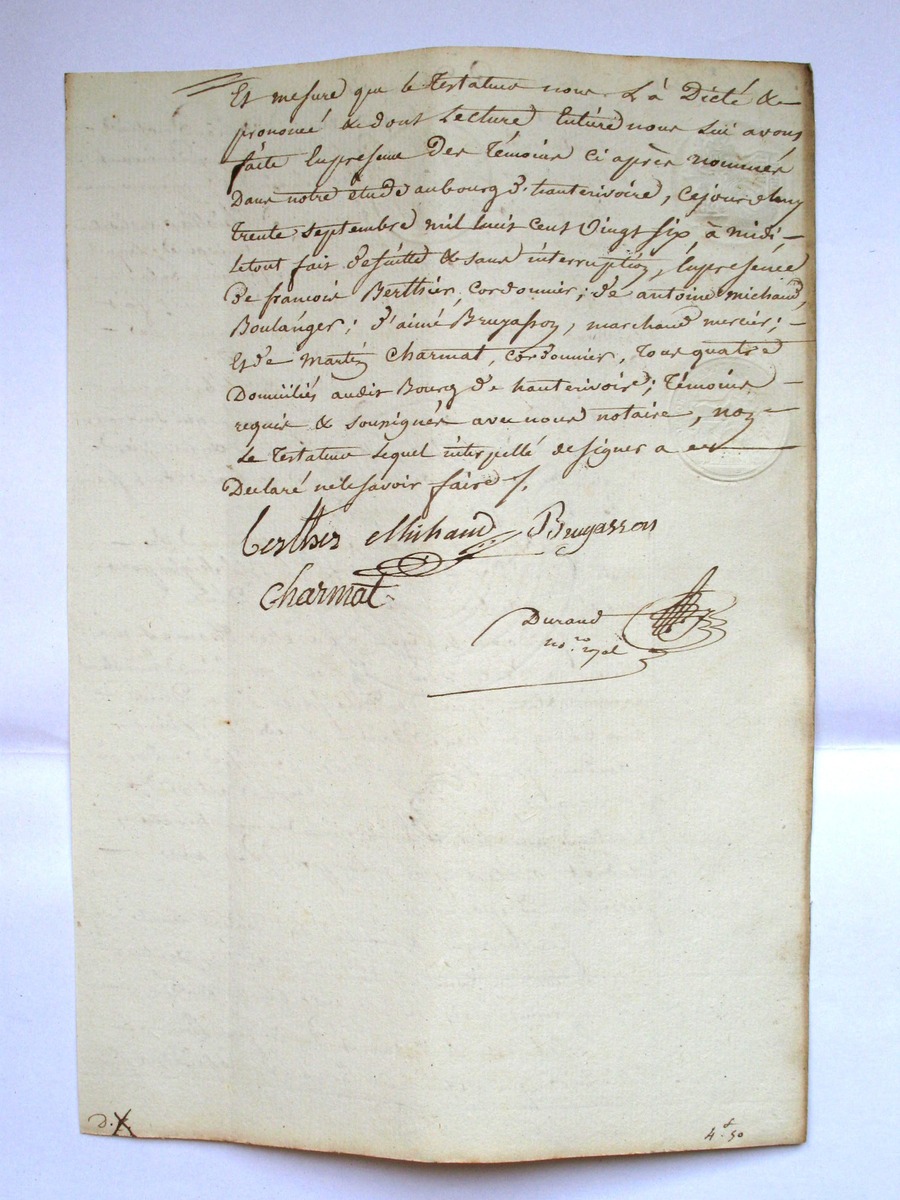 Et mesure que le Testateur nous L'a Dicté &
prononcé & dont Lecture Entière nous Lui avons
faite En presence Des Témoins ci après nommés
Dans notre étude au bourg d'hauterivoire, cejourd'huy
trente septembre mil huit cent vingt six à midi,
le tout fait de suitte & sans interruption, En presence
de françois Berthier, cordonnier; de antoine michaud,
Boulanger; d'aimé Bruyasson, marchand mercier;
Et de Martin Charmat, cordonnier, Tous quatre
Domiciliés audit Bourg de hauterivoire; Témoins
requis & soussignés avec nous notaire, non
Le Testateur Lequel interpellé de signer a
Declaré ne le savoir faire /.
Berthier Michaud Bruyasson
Charmat
Durand
no.re royal
D. X
4 f 50